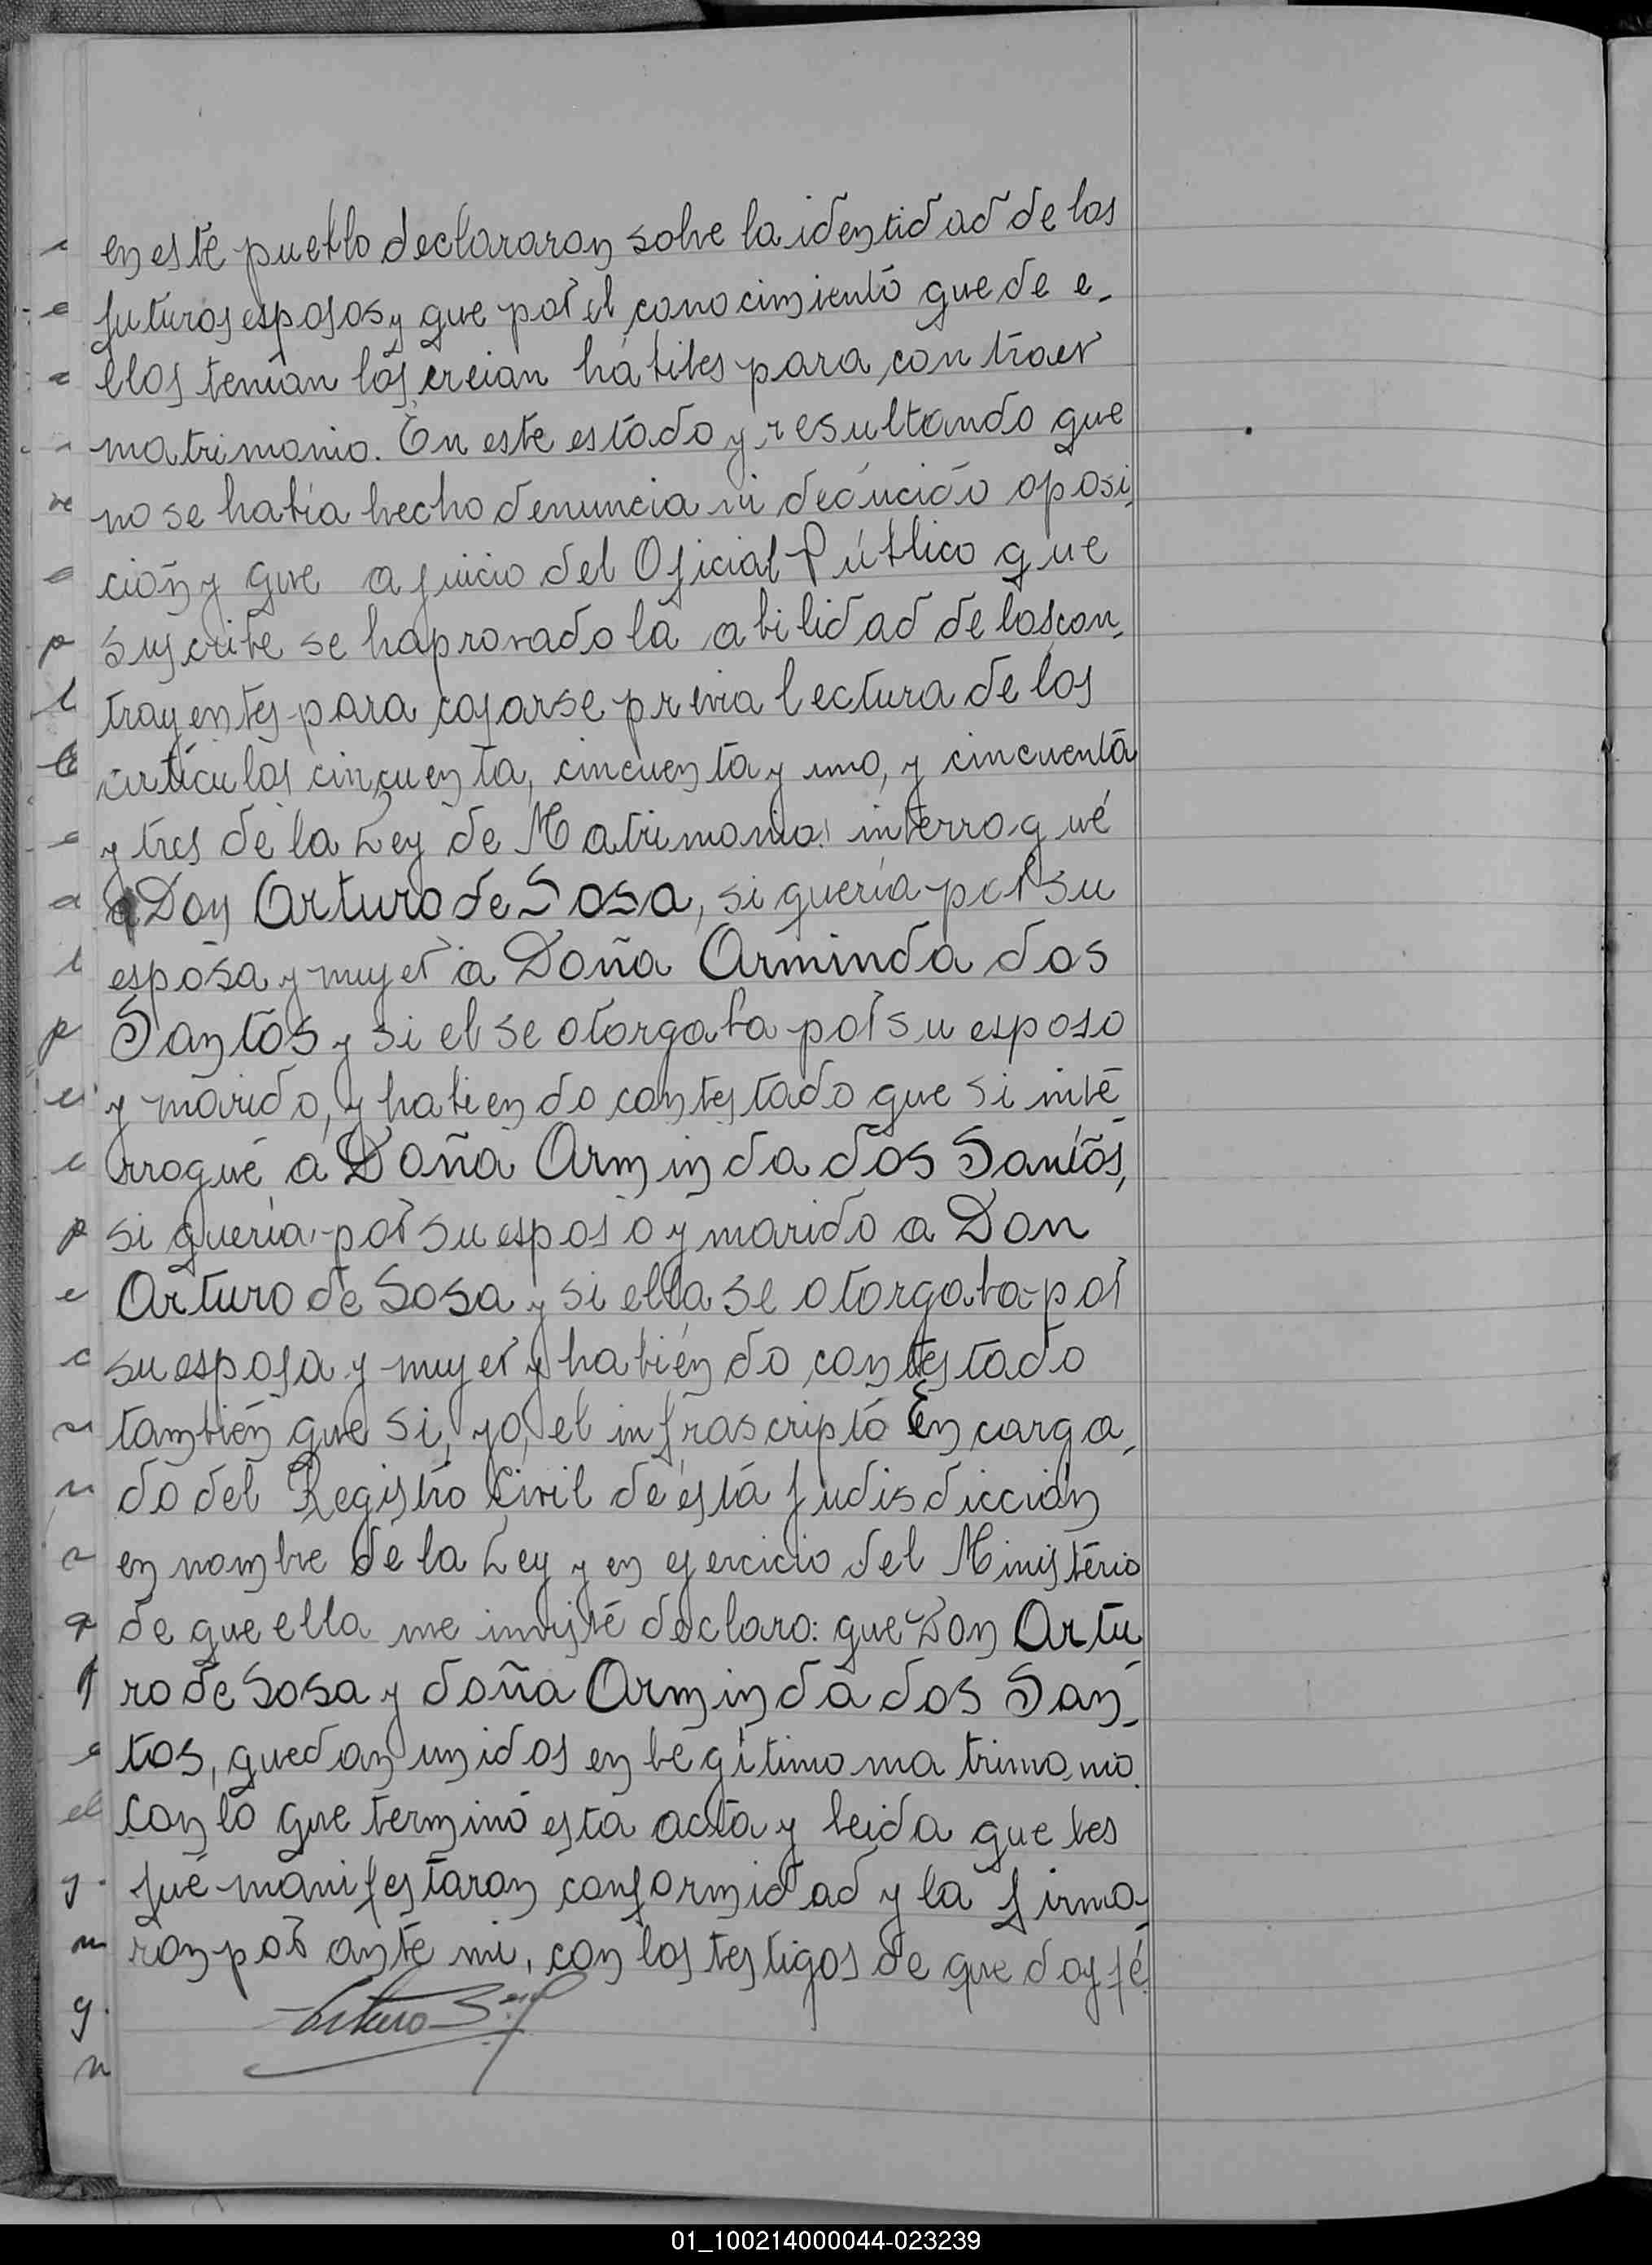 en este pueblo declararon sobre la identidad de los
futuros esposos y que por el conocimiento que de e-
llos tenían los creian hábiles para contraer
matrimonio. En este estado y resultando que
no se había hecho denuncia ni deducido oposi-
ción y que a juicio del Oficial Público que
suscribe se ha provado la abilidad de los con-
trayentes para casarse previa lectura de los
artículos cincuenta, cincuenta y uno, y cincuenta
y tres de la Ley de Matrimonio: interrogué
a Don Arturo de Sosa, si quería por su
esposa y mujer a Doña Arminda dos
Santos y si el se otorgaba por su esposo
y marido, y habiendo contestado que si inte-
rrogué a Doña Arminda dos Santos,
si quería por su esposo y marido a Don
Arturo de Sosa y si ella se otorgaba por
su esposa y mujer y habiendo contestado
también que si, yo, el infrascripto Encarga-
do del Registro Civil de ésta Judisdicción
en nombre de la Ley y en ejercicio del Ministerio
de que ella me inviste declaro: que Don Artu-
ro de Sosa y doña Arminda dos San-
tos, quedan unidos en legítimo matrimonio.
Con lo que terminó esta acta y leida que les
fué manifestaron conformidad y la firma-
ron por ante mi, con los testigos de que doy fé.
Arturo Sosa
01_100214000044-023239